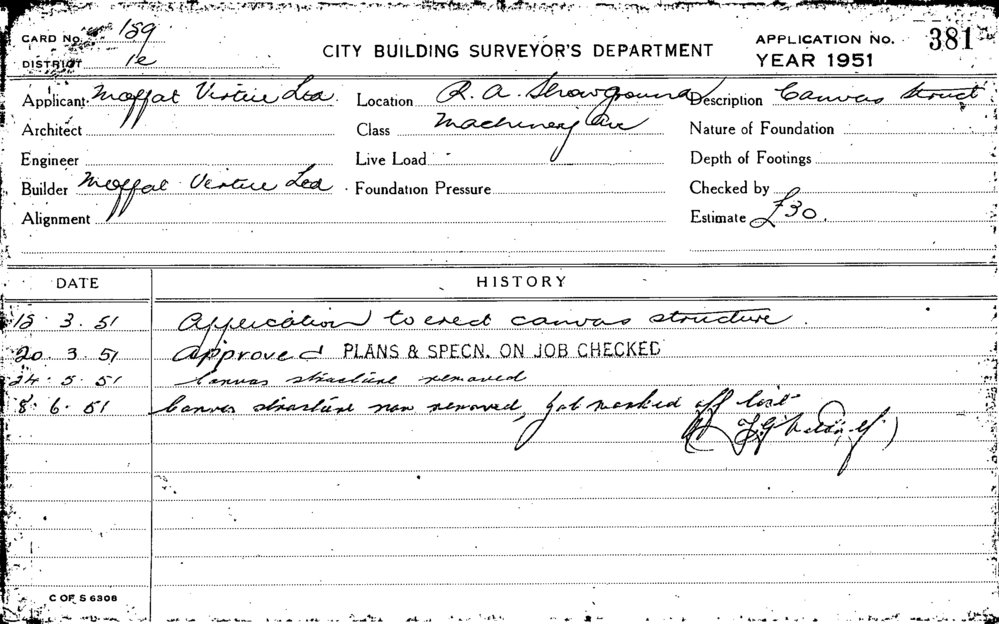 CARD No. 189
DISTRICT 1e
CITY BUILDING SURVEYOR'S DEPARTMENT
APPLICATION No. 381
YEAR 1951
Applicant Moffat Virtue Ltd. Location R. A. Showground Description Canvas struct
Architect Class Machinery Ave Nature of Foundation
Engineer Live Load Depth of Footings
Builder Moffat Virtue Ltd Foundation Pressure Checked by
Alignment Estimate £30.
DATE HISTORY
15. 3. 51 Application to erect canvas structure.
20. 3. 51 Approved PLANS & SPECN. ON JOB CHECKED
24. 5. 51 Canvas structure removed
8. 6. 51 Canvas structure now removed, job marked off list
C OF S 6308